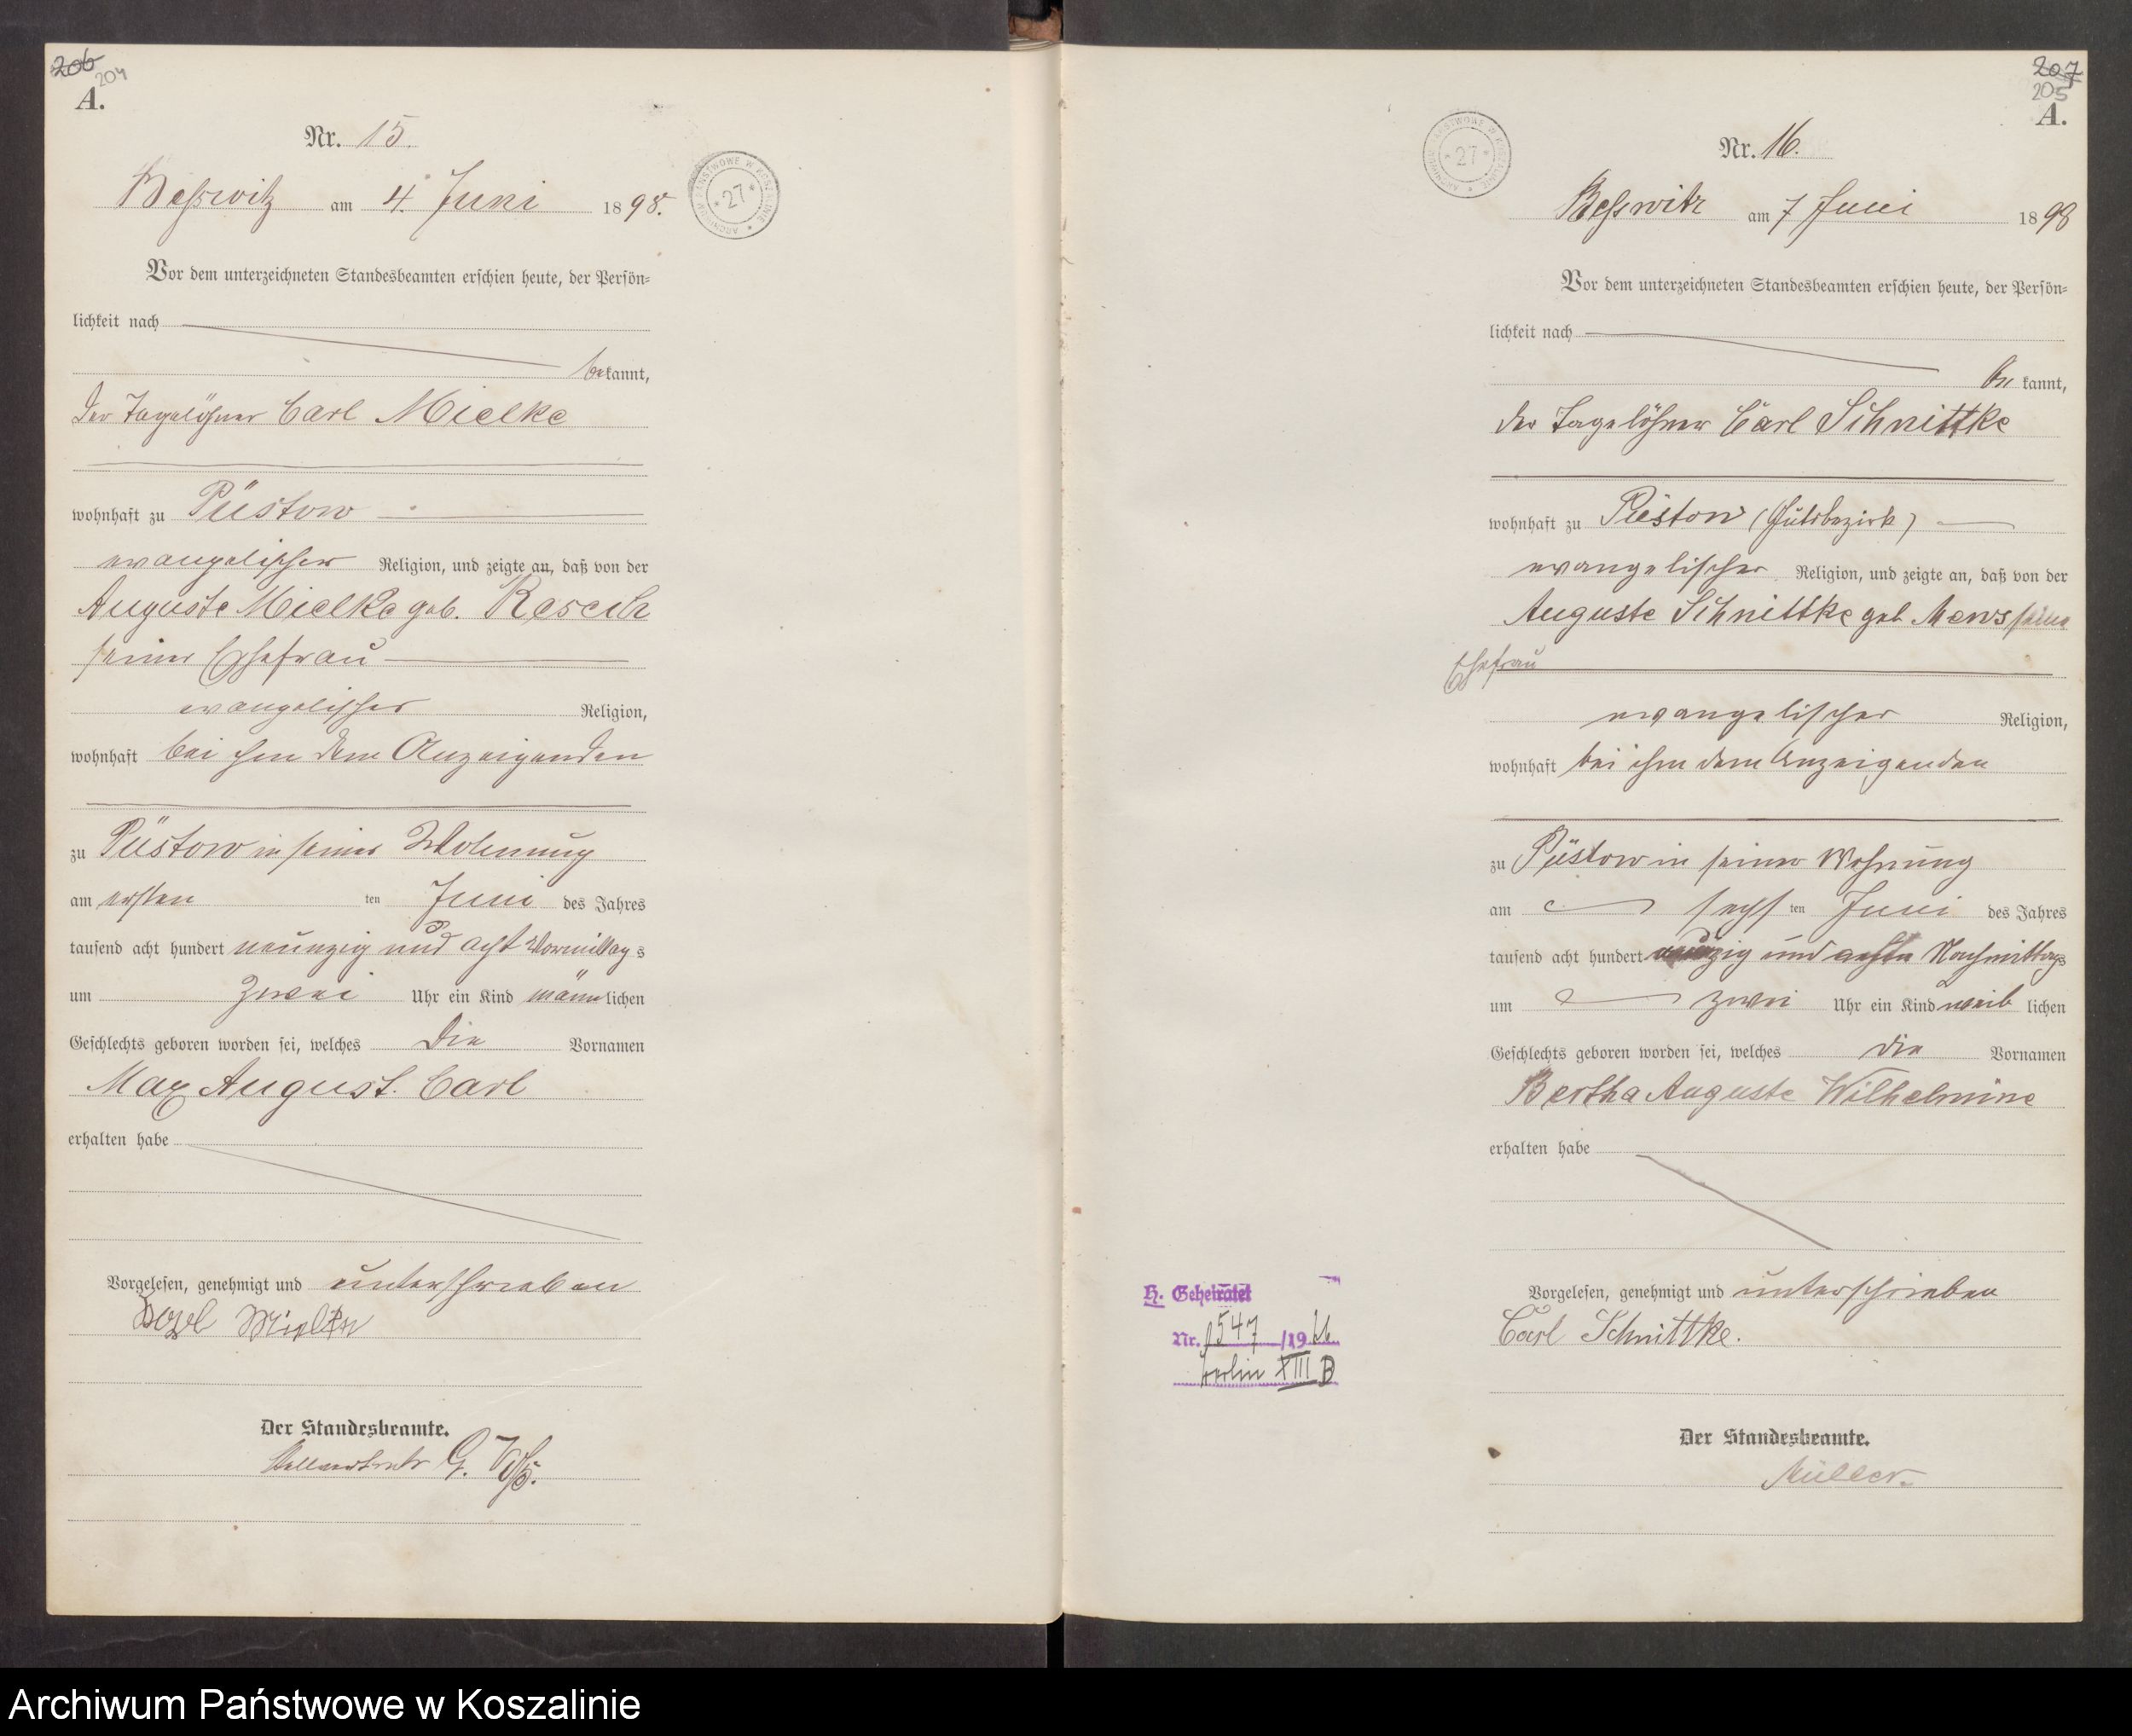 206
204
A.
Nr. 15.
Beßwitz am 4. Juni 1898.
ARCHIWUM PAŃSTWOWE W KOSZALINIE * 27 *
Vor dem unterzeichneten Standesbeamten erschien heute, der Persön-
lichkeit nach
bekannt,
der Tagelöhner Carl Mielke
wohnhaft zu Püstow
evangelischer Religion, und zeigte an, daß von der
Auguste Mielke geb.
seiner Ehefrau
evangelischer Religion,
wohnhaft bei ihm dem Anzeigenden
zu Püstow in seiner Wohnung
am ersten ten Juni des Jahres
tausend acht hundert neunzig und acht Vormittags
um zwei Uhr ein Kind männlichen
Geschlechts geboren worden sei, welches die Vornamen
Max August. Carl
erhalten habe
Vorgelesen, genehmigt und unterschrieben
Karl Mielke
Der Standesbeamte.
G.
207
205
A.
Nr. 16.
Beßwitz am 7 Juni 1898
ARCHIWUM PAŃSTWOWE W KOSZALINIE * 27 *
Vor dem unterzeichneten Standesbeamten erschien heute, der Persön-
lichkeit nach
be kannt,
der Tagelöhner Carl Schnittke
wohnhaft zu Püstow (Gutsbezirk)
evangelischer Religion, und zeigte an, daß von der
Auguste Schnittke geb. Mews seine
Ehefrau
evangelischer Religion,
wohnhaft bei ihm dem Anzeigenden
zu Püstow in seiner Wohnung
am sechsten Juni des Jahres
tausend acht hundert neunzig und acht Nachmittags
um zwei Uhr ein Kind weib lichen
Geschlechts geboren worden sei, welches die Vornamen
Bertha Auguste Wilhelmine
erhalten habe
Vorgelesen, genehmigt und unterschrieben
Carl Schnittke.
Der Standesbeamte.
Müller.
H. Geheiratet
Nr. 547 /19
Berlin XIII B
Archiwum Państwowe w Koszalinie